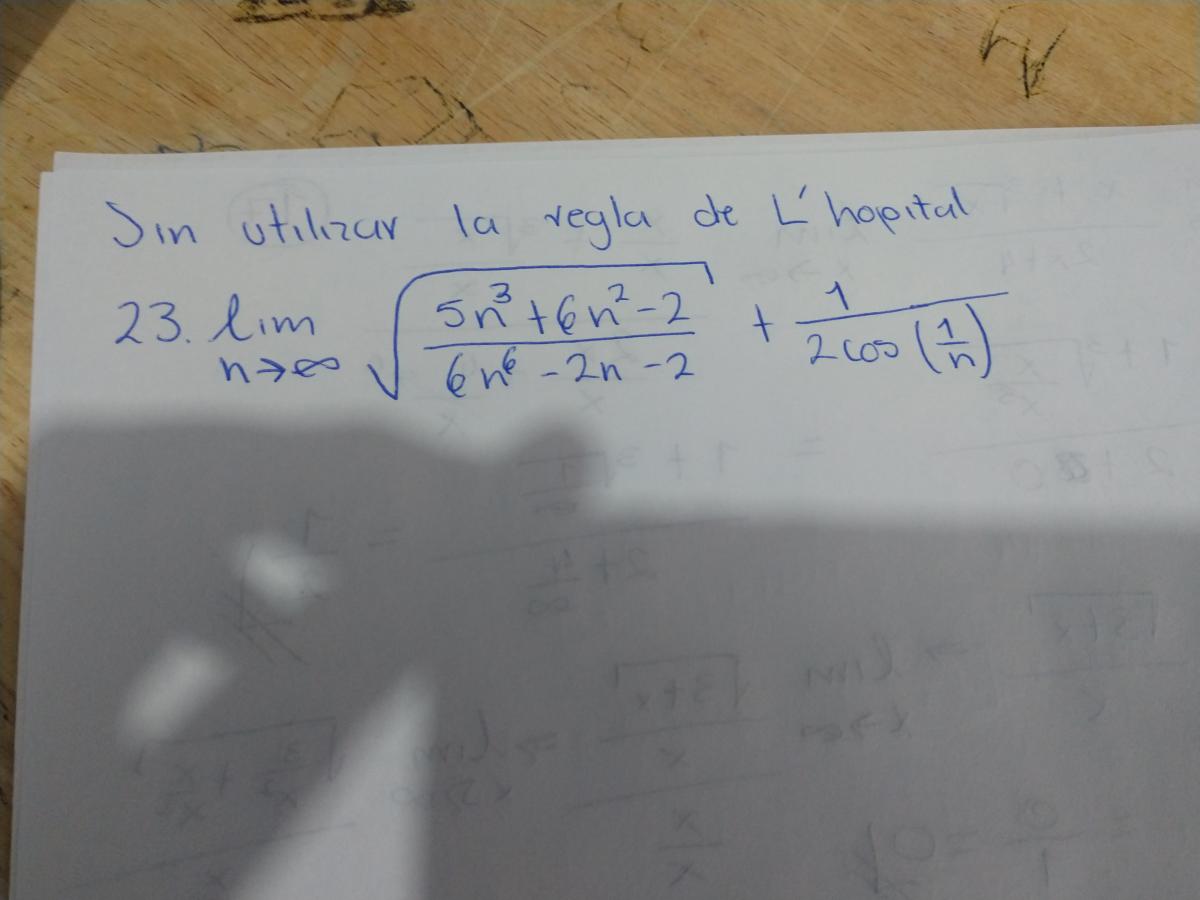 Sin utilizar la regla de L'hopital
23. lim n→∞ √((5n³+6n²-2)/(6n⁶-2n-2)) + 1/(2cos(1/n))